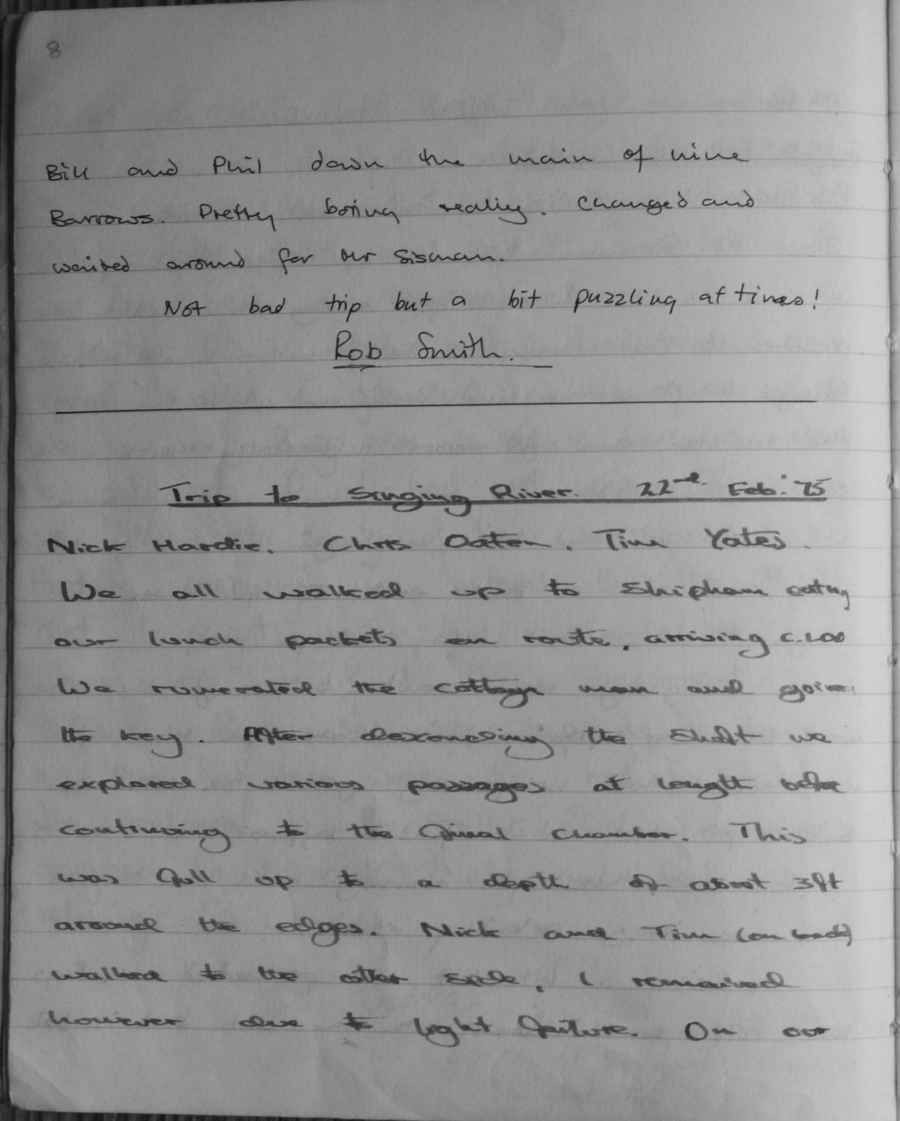 8
Bill and Phil down the main of nine
Barrows. Pretty boring really. Changed and
waited around for our Sisman.
Not bad trip but a bit puzzling at times!
Rob Smith.
Trip to Singing River. 22nd Feb: 75
Nick Hardie. Chris Oaten. Tim Yates.
We all walked up to Shipham eating
our lunch packets en route, arriving c.
We the cottage man and
the key. After descending the shaft we
explored various passages at lenght before
continuing to the final chamber. This
was full up to a depth of about 3ft
around the edges. Nick and Tim (on back)
walked to the other side, I remained
however due to light failure. On our